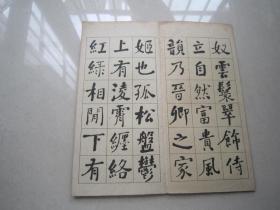 奴雲鬟翠飾侍
立自然富貴風
韻乃晉卿之家
姬也孤松盤鬱
上有淩霄纏絡
紅綠相閒下有